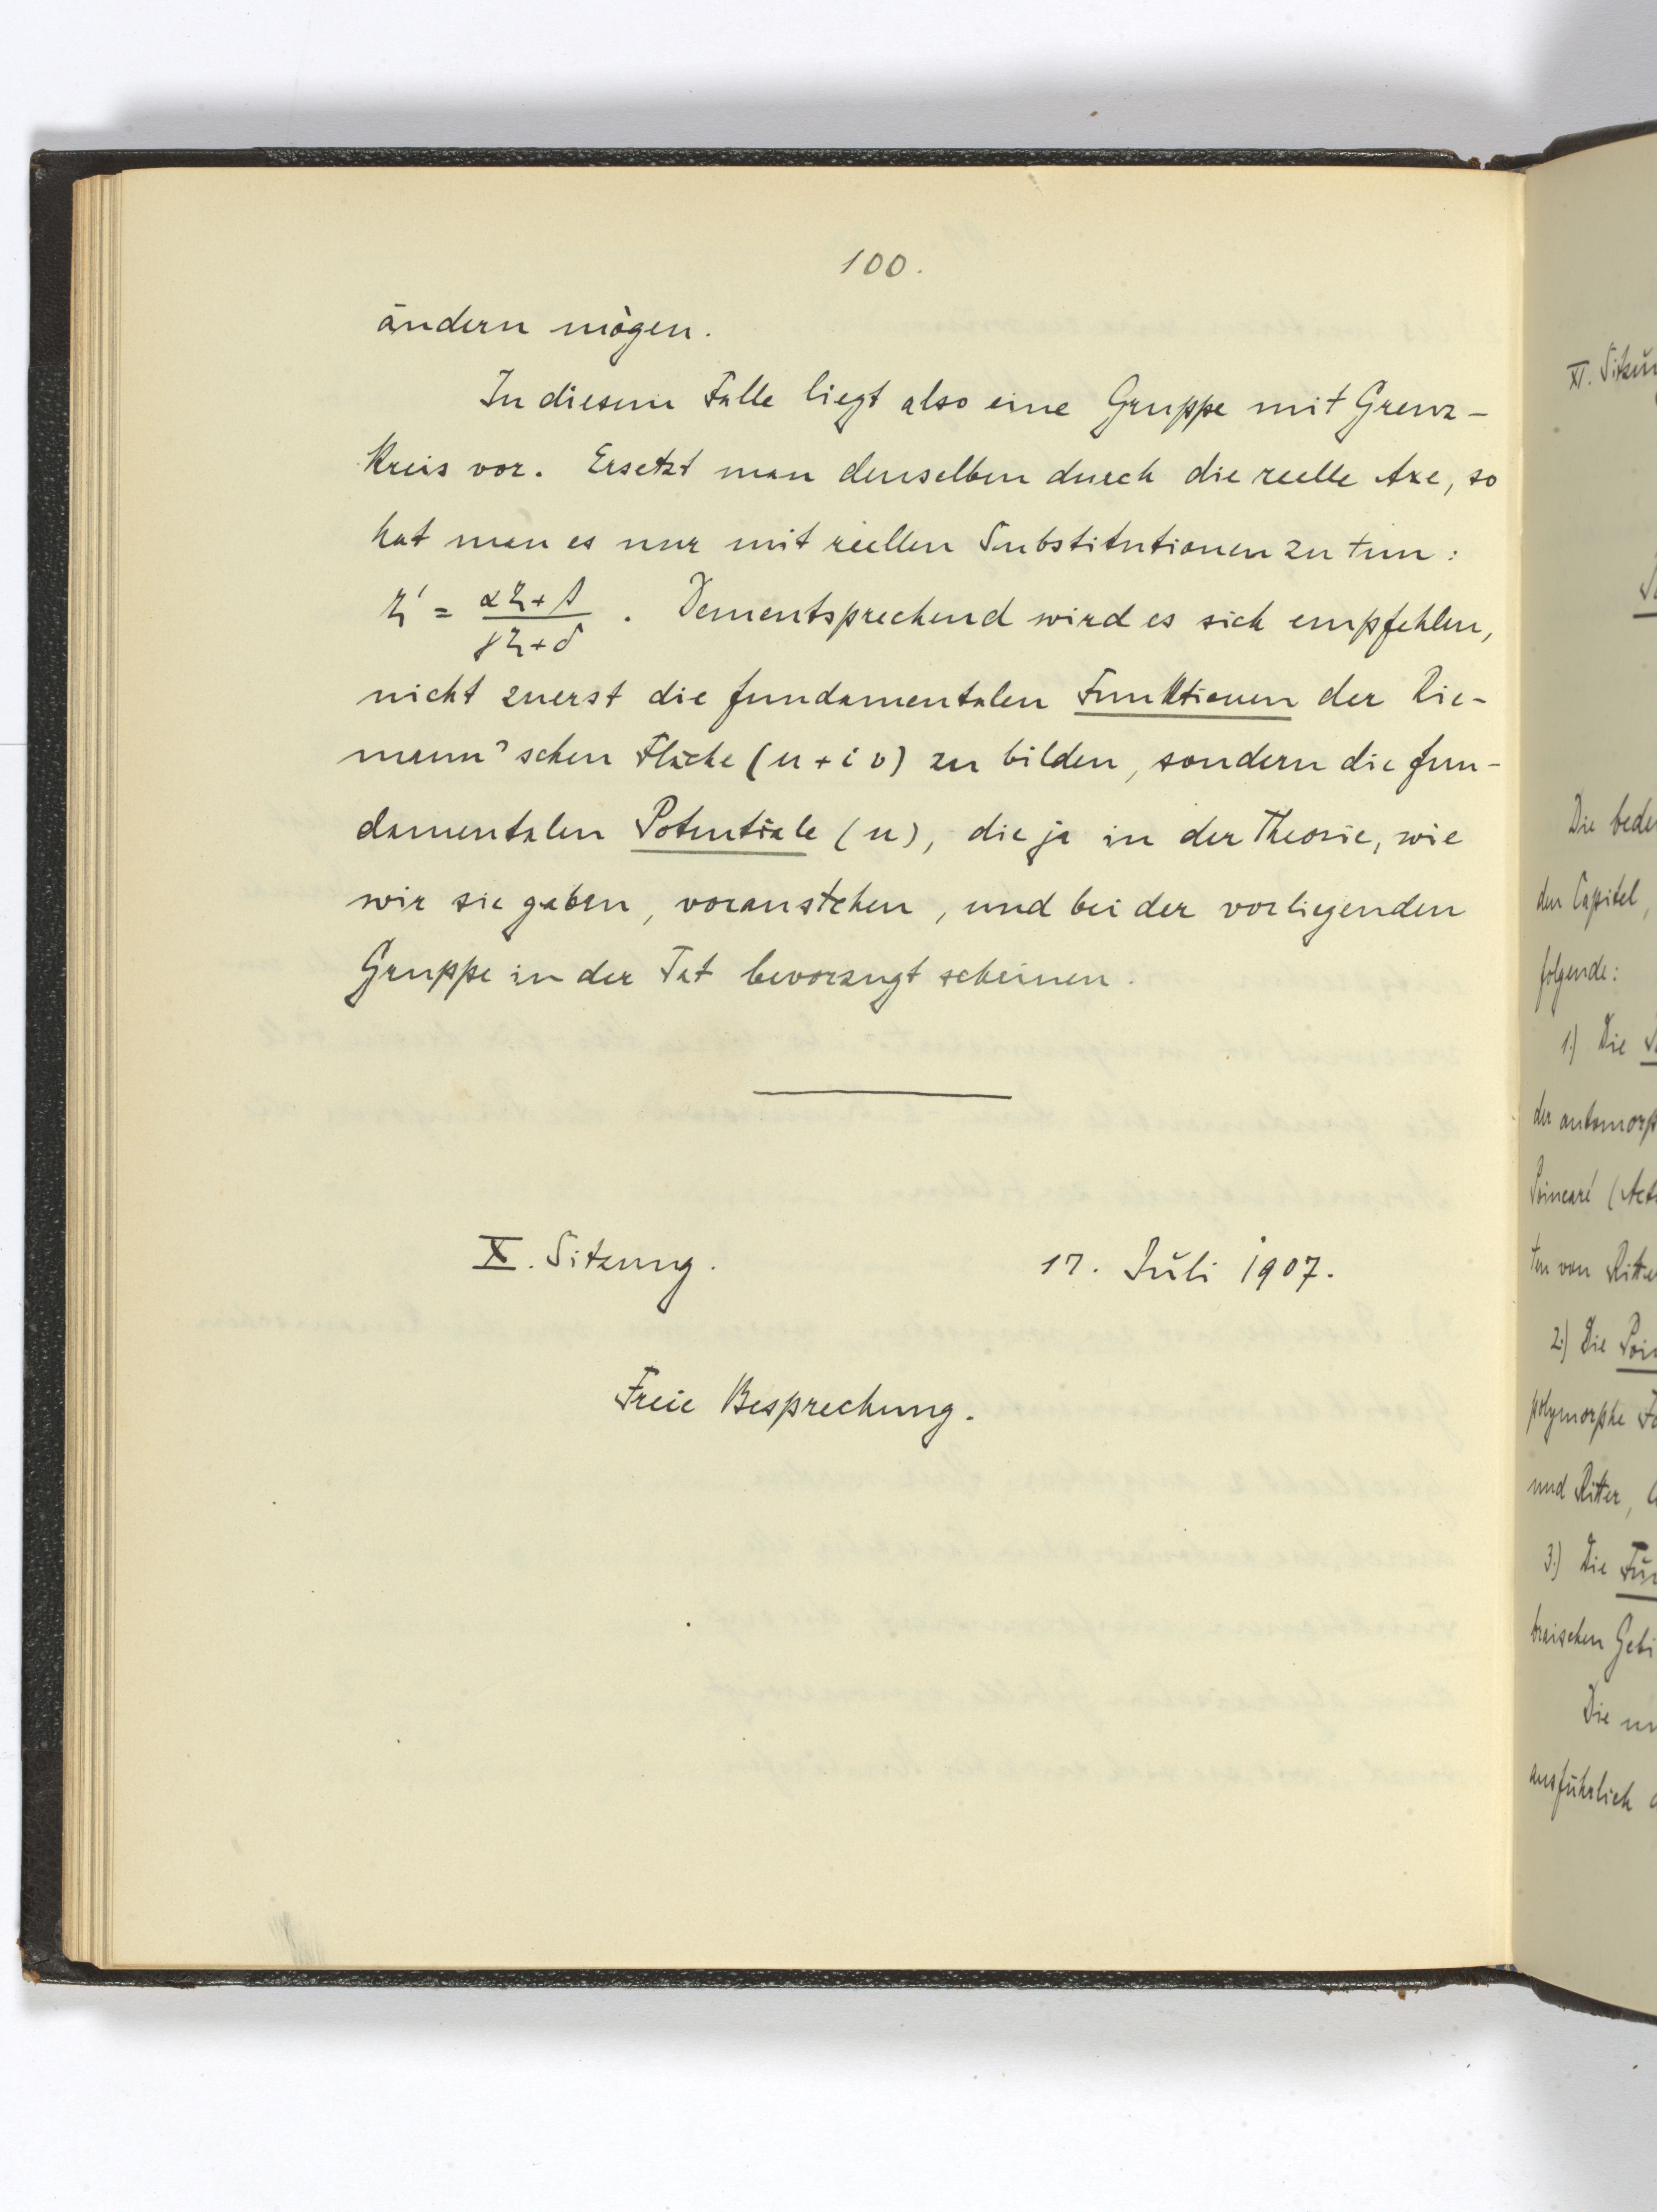 100.
ändern mögen.
In diesem Falle liegt also eine Gruppe mit Grenz-
Kreis vor. Ersetzt man denselben durch die reelle Axe, so
hat man es nur mit reellen Substitutionen zu tun:
ζ' = (αζ+β)/(γζ+δ). Dementsprechend wird es sich empfehlen,
nicht zuerst die fundamentalen Funktionen der Rie-
mann'schen Fläche (u+iv) zu bilden, sondern die fun-
damentalen Potentiale (u), die ja in der Theorie, wie
wir sie gaben, voranstehen, und bei der vorliegenden
Gruppe in der Tat bevorzugt scheinen.
X. Sitzung. 17. Juli 1907.
Freie Besprechung.
XI.
Die
den Capitel,
folgende:
1.) Die
der
Poincaré
ten von
2.) Die
polymorphe
und Ritter,
3.) Die
Die
ausführlich